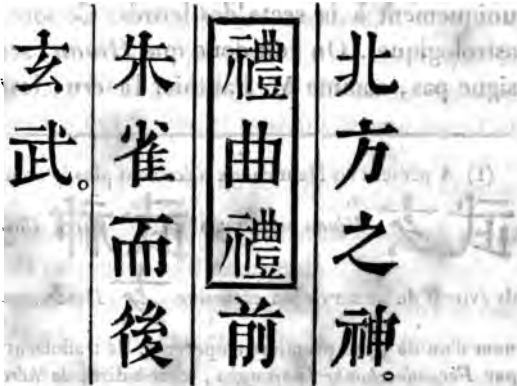 北方之神。
禮曲禮前
朱雀而後
玄武。